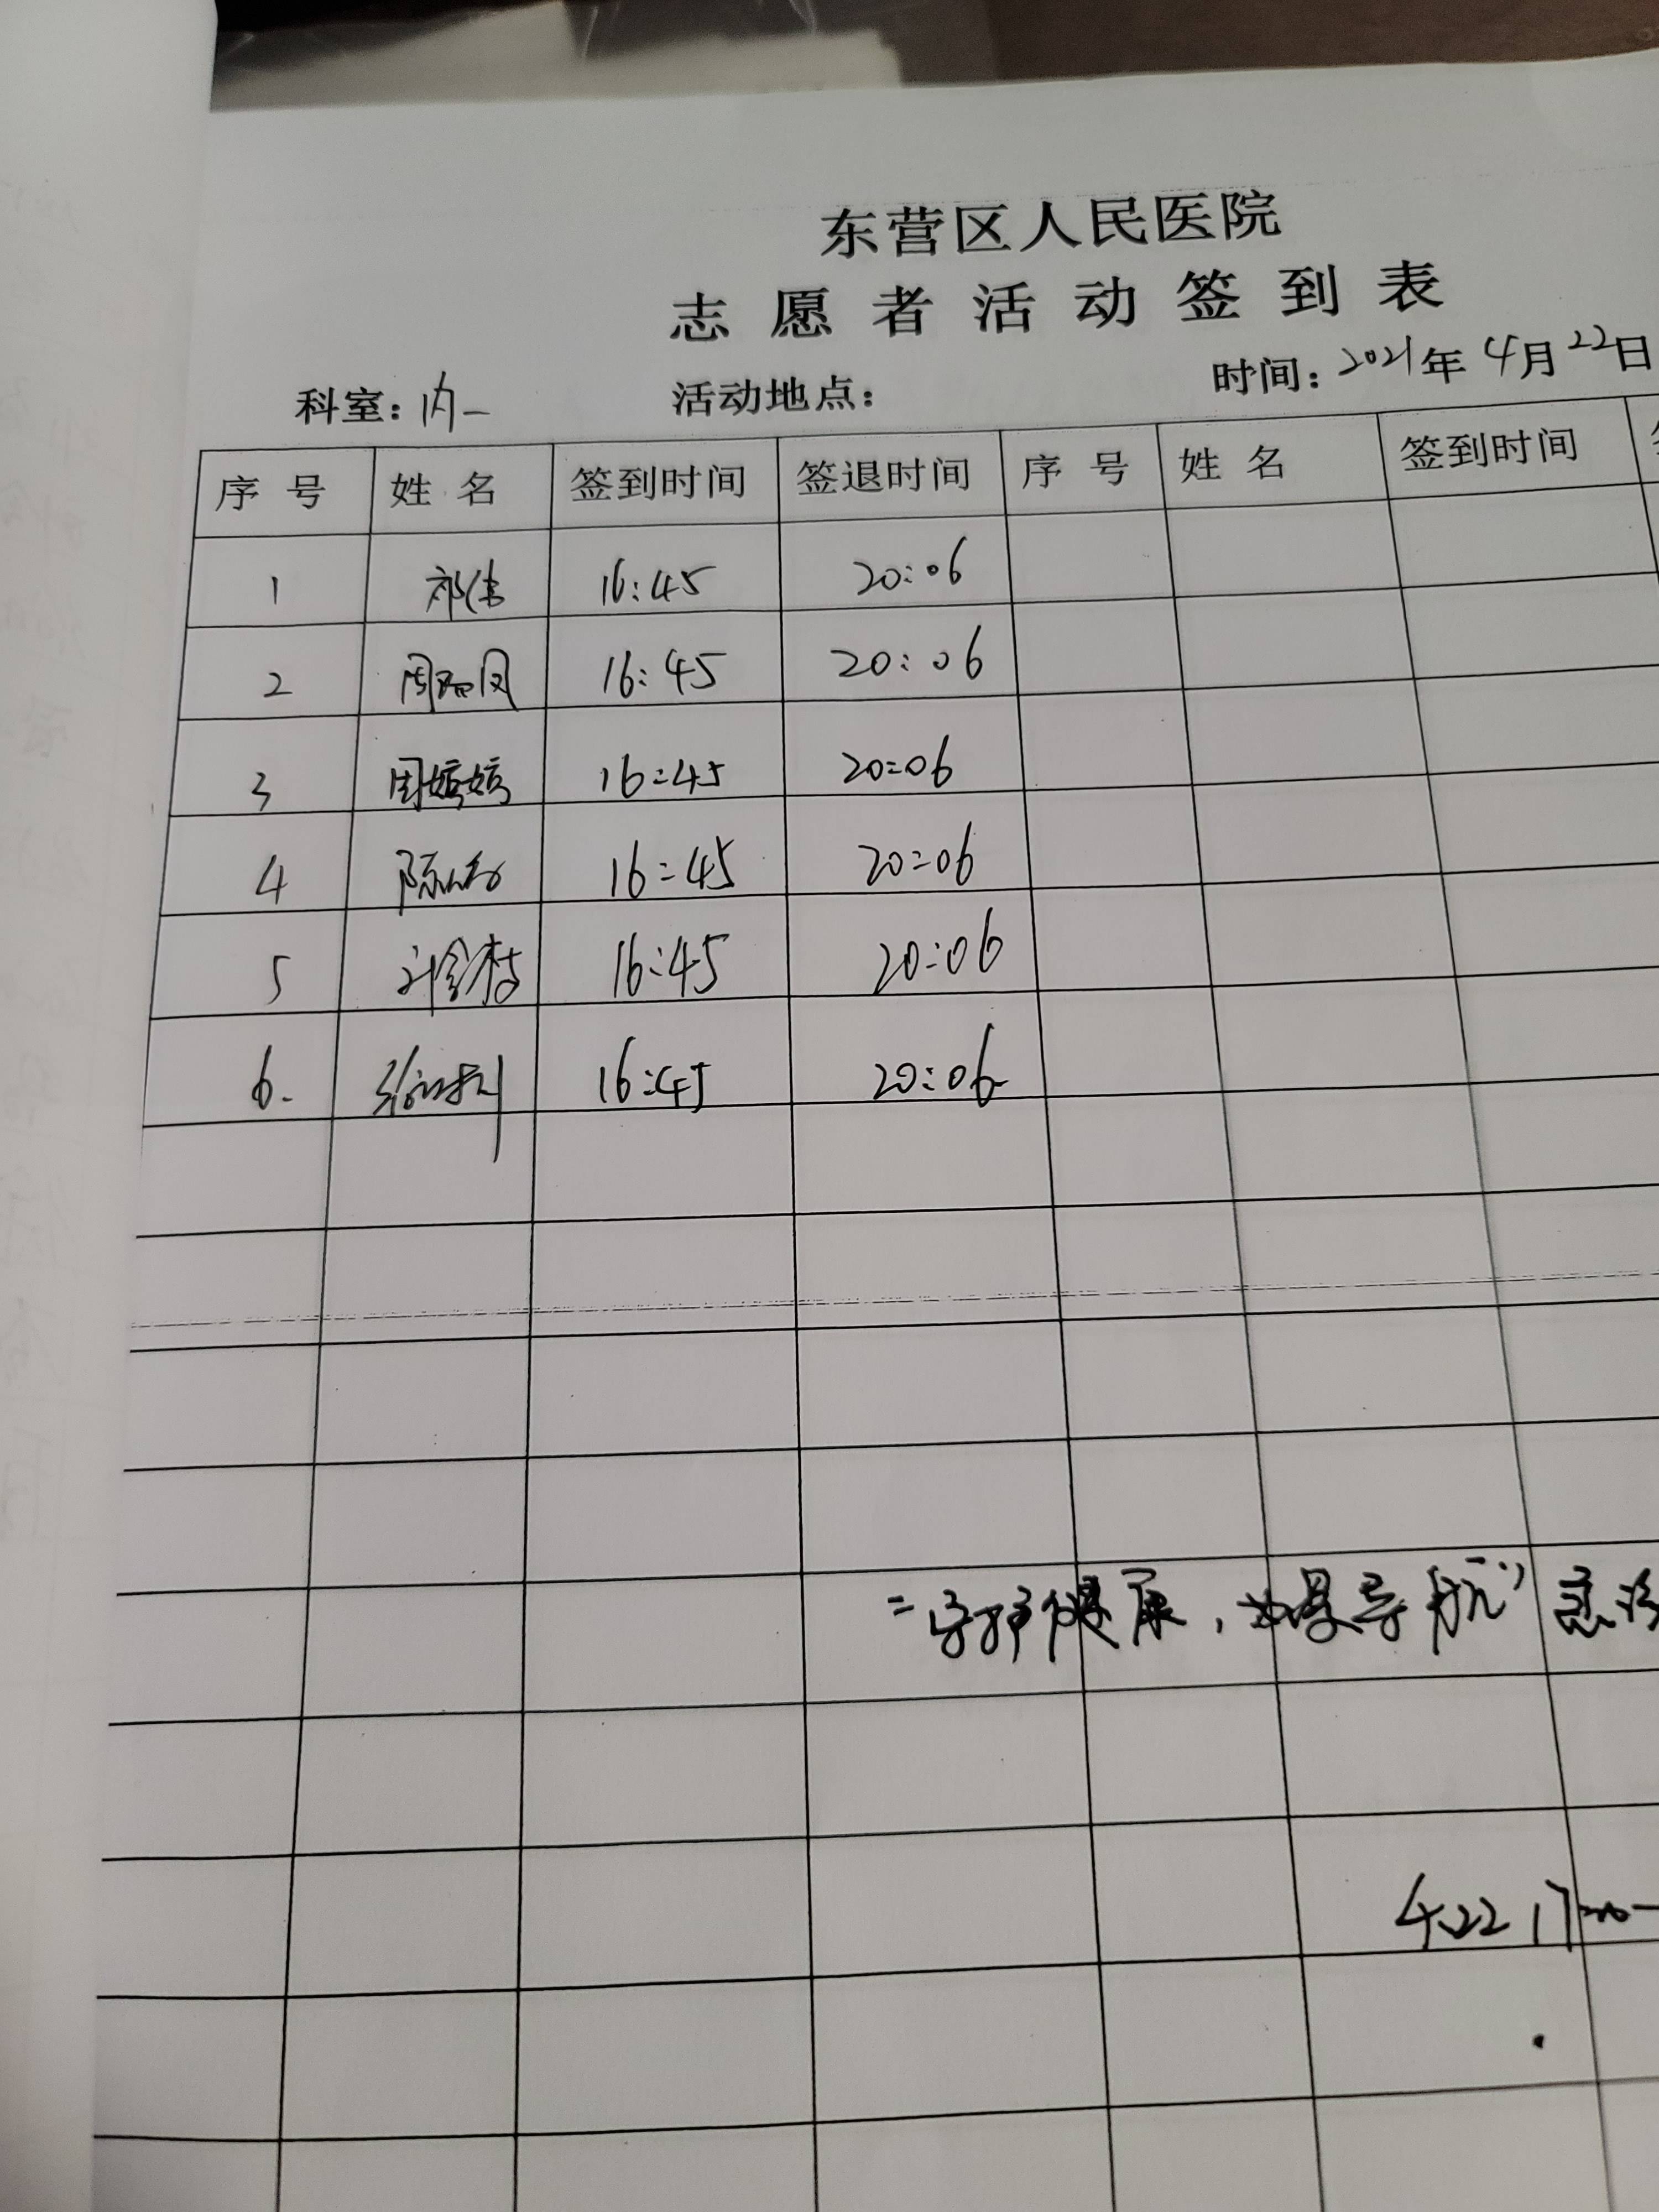 东营区人民医院
志愿者活动签到表
科室：内一 活动地点： 时间：2021年4月22日
序号 姓名 签到时间 签退时间 序号 姓名 签到时间
1 祁伟 16:45 20:06
2 周 凤 16:45 20:06
3 周婷婷 16:45 20:06
4 陈 16:45 20:06
5 16:45 20:06
6. 16:45 20:06
"守护健康， 导航"
4.22 17